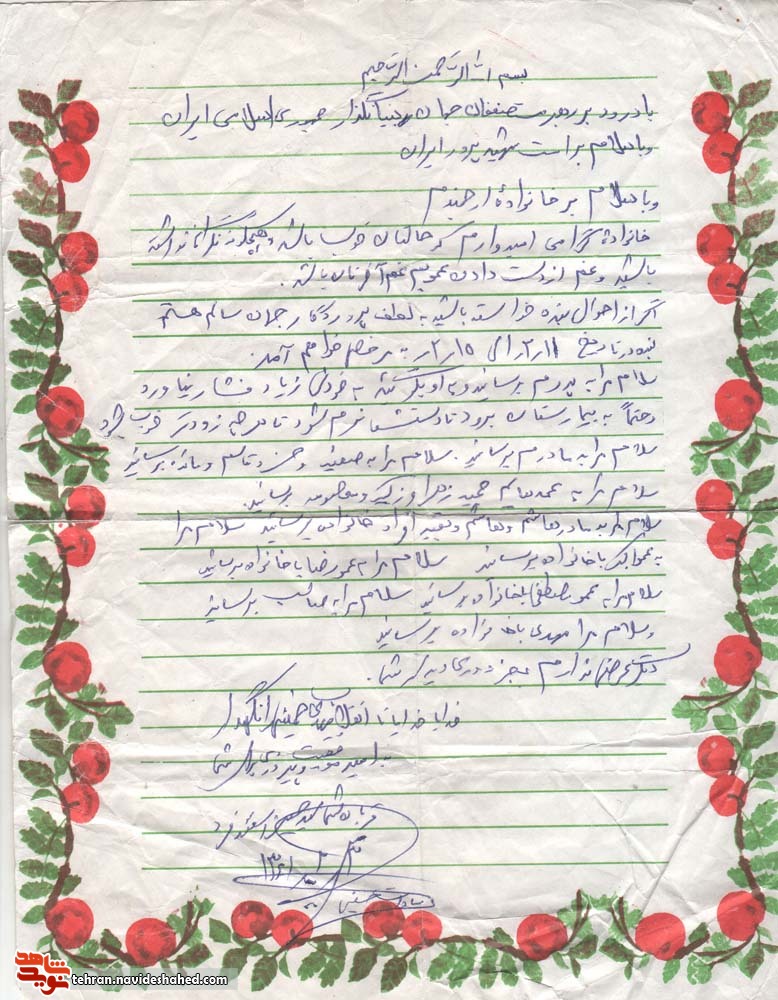 بسم الله الرحمن الرحیم
با درود بر رهبر مستضعفان جهان و بنیانگذار جمهوری اسلامی ایران
و با سلام بر امت شهید پرور ایران
و با سلام بر خانوادهٔ ارجمندم
خانوادهٔ گرامی امیدوارم که حالتان خوب باشد و هیچگونه نگرانی نداشته
باشید و غم از دست دادن عمویم غم آخرتان باشد.
اگر از احوال بنده خواسته باشید به لطف پروردگار جهان سالم هستم
بنده در تاریخ به مرخصی خواهم آمد.
سلام مرا به پدرم برسانید و به او بگوئید که به خودش زیاد فشار نیاورد
و حتماً به بیمارستان برود تا دستش نرم شود تا هر چه زودتر خوب شود
سلام مرا به مادرم برسانید. سلام مرا به صغید و حسن و قاسم و مائده برسانید
سلام مرا به عمه هایم حمید زهرا و زکیه و معصومه برسانید.
سلام مرا به مادر هاشم و هاشم و بقیه افراد خانواده برسانید سلام مرا
به عمو با خانواده برسانید سلام مرا به عمو رضا با خانواده برسانید
سلام مرا به عمو مصطفی با خانواده برسانید سلام مرا به صاحب برسانید
و سلام مرا مهدی با خانواده برسانید
دیگر عرضی ندارم بجز دوری دیدار شما.
خدایا خدایا تا انقلاب مهدی خمینی را نگهدار
به امید موفقیت و پیروزی برای شما
قربان شما سید حسین
۱۳۶۱
سادات حسینی
نوید شاهد
tehran.navideshahed.com